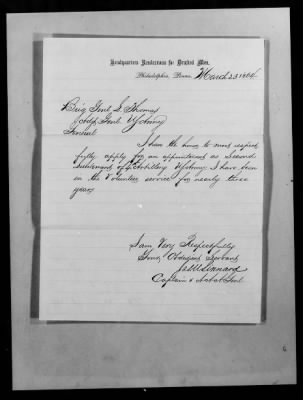 Headquarters Rendezvous for Drafted Men,
Philadelphia, Penna. March 23 1864
Brig Genl L. Thomas
Adjt Genl U.S. Army
General
I have the honor to most respect
fully apply for an appointment as Second
Lieutenant of Artillery U.S. Army. I have been
in the Volunteer service for nearly three
years
I am Very Respectfully
Your Obedient Servant
Captain &